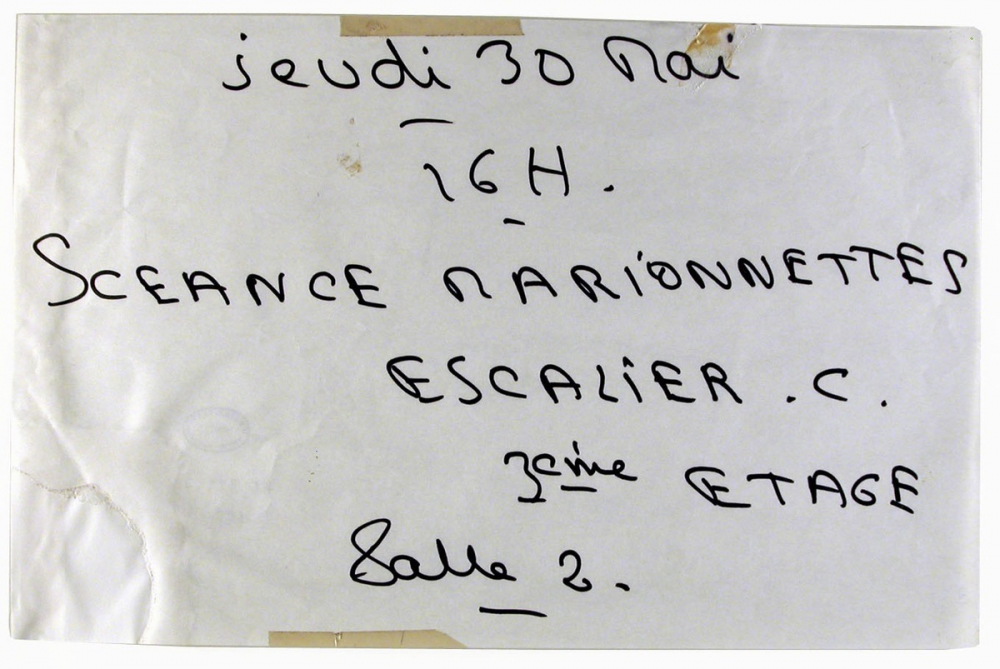 jeudi 30 Mai
16 H.
SCEANCE MARIONNETTES
ESCALIER . C.
3eme ETAGE
Salle 2.